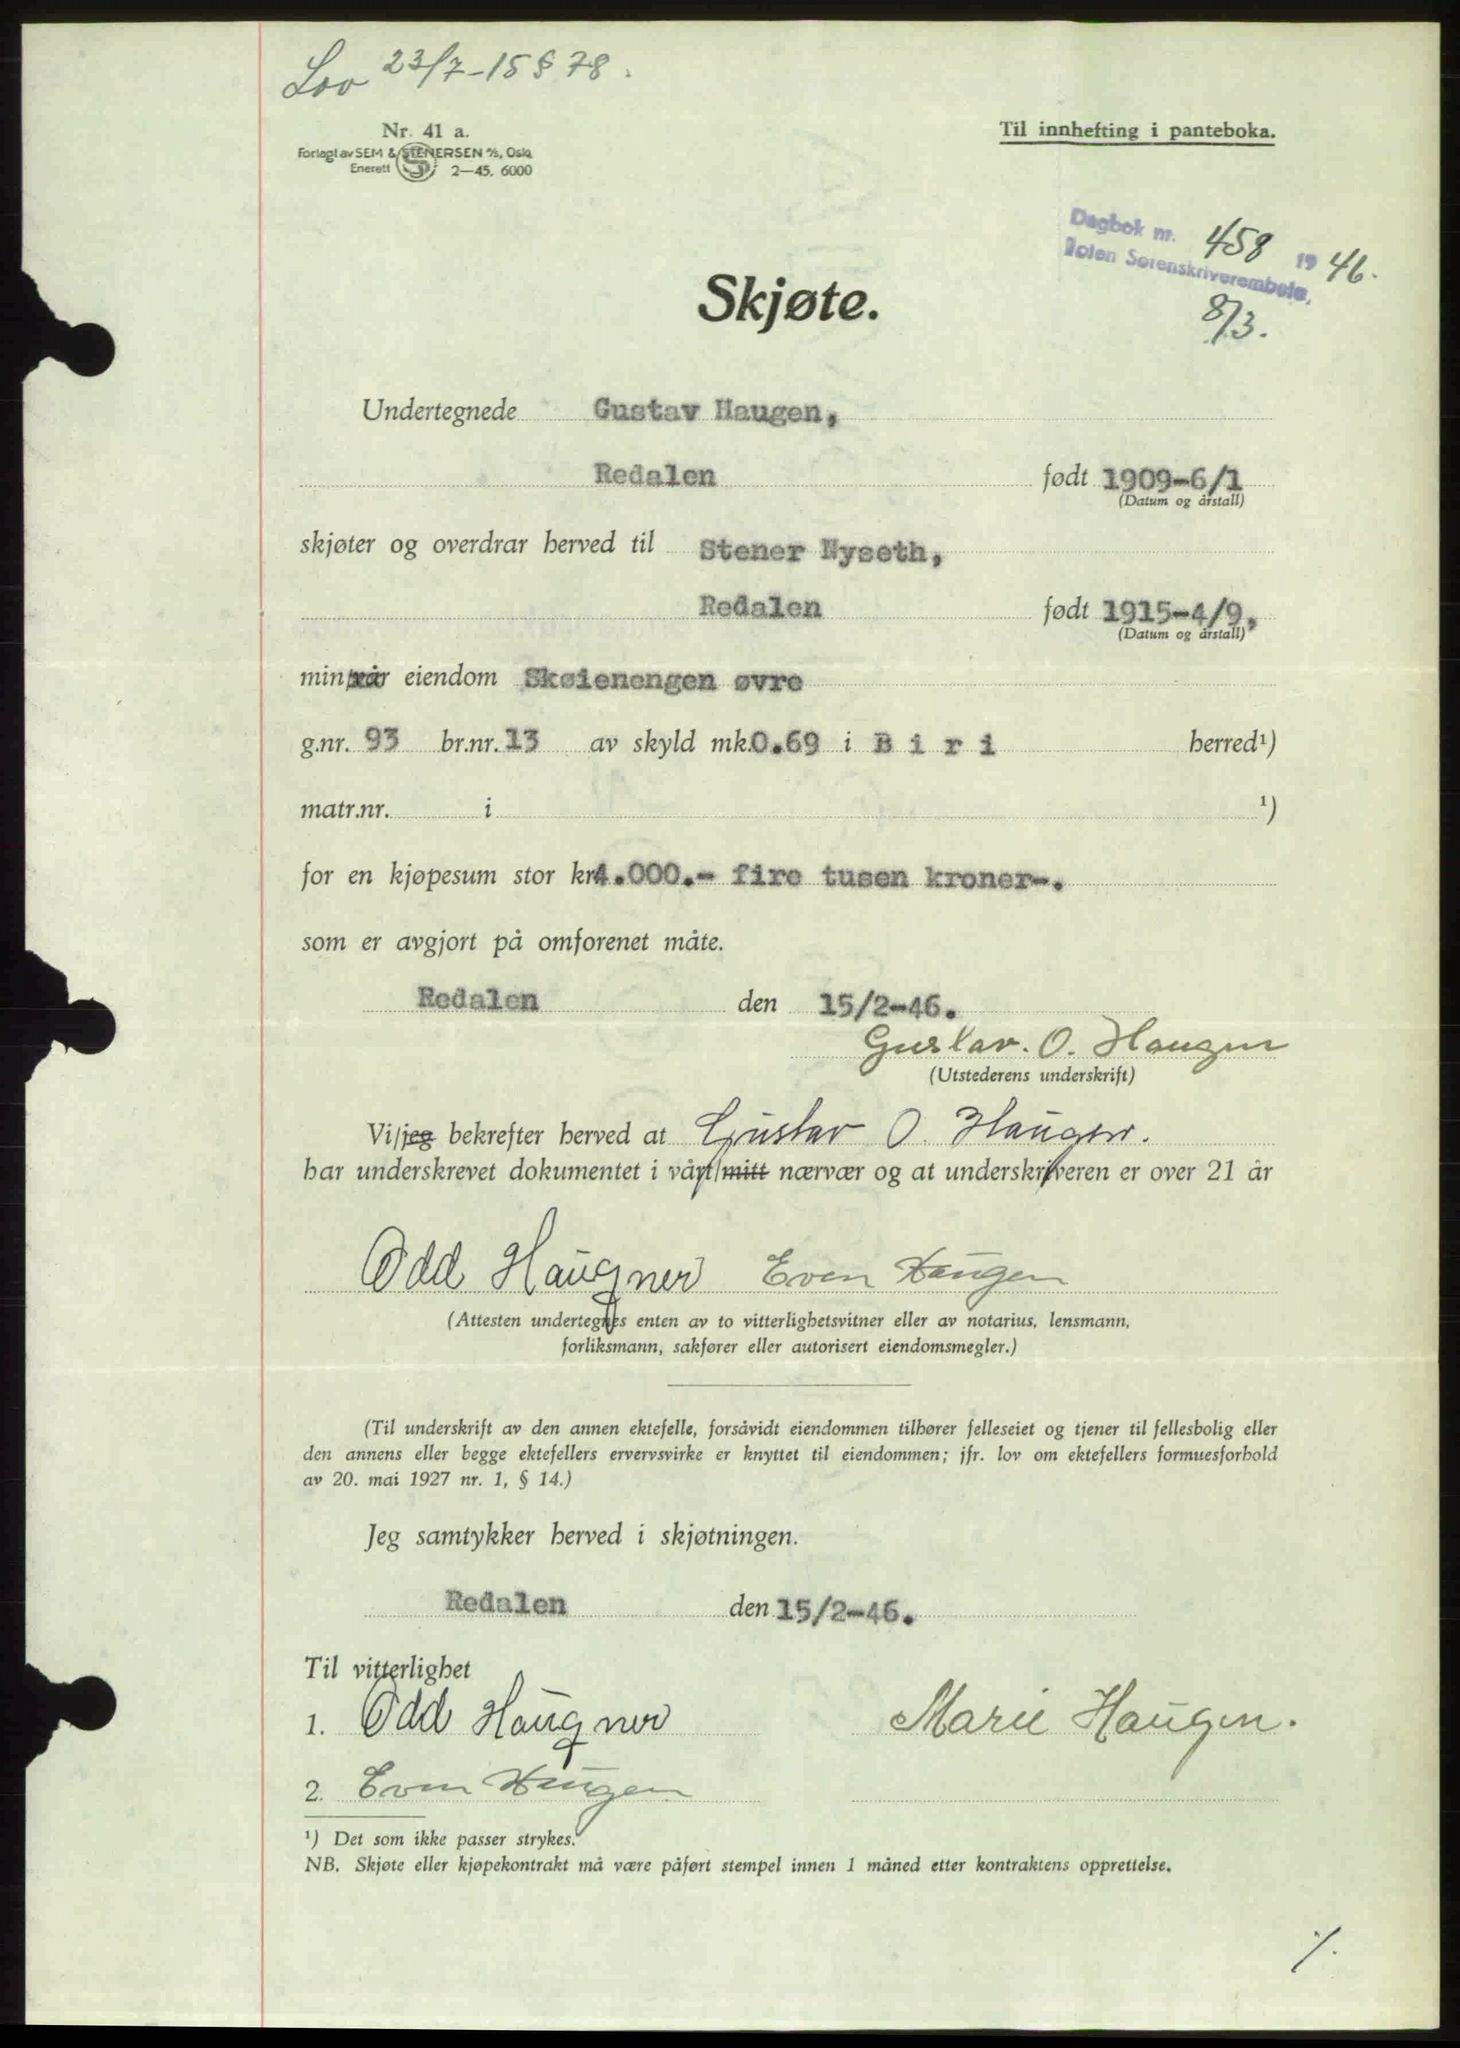 Lov 23/7-15 § 78.
Nr. 41 a.
Forlagt av SEM & STENERSEN A/S, Oslo
Enerett 2—45. 6000
Til innhefting i panteboka.
Dagbok nr. 458 1946.
Toten Sorenskriverembete,
8/3.
Skjøte.
Undertegnede Gustav Haugen,
Redalen født 1909-6/1
(Datum og årstall)
skjøter og overdrar herved til Stener Nyseth,
Redalen født 1915-4/9.
(Datum og årstall)
min/vår eiendom Skøienengen øvre
g.nr. 93 br.nr. 13 av skyld mk. 0.69 i Biri herred¹)
matr.nr. i ¹)
for en kjøpesum stor kr 4.000.- fire tusen kroner-.
som er avgjort på omforenet måte.
Redalen den 15/2-46.
Gustav. O. Haugen
(Utstederens underskrift)
Vi/jeg bekrefter herved at Gustav O. Haugen.
har underskrevet dokumentet i vårt/mitt nærvær og at underskriveren er over 21 år
Odd Haugner Even Haugen
(Attesten undertegnes enten av to vitterlighetsvitner eller av notarius, lensmann,
forliksmann, sakfører eller autorisert eiendomsmegler.)
(Til underskrift av den annen ektefelle, forsåvidt eiendommen tilhører felleseiet og tjener til fellesbolig eller
den annens eller begge ektefellers ervervsvirke er knyttet til eiendommen; jfr. lov om ektefellers formuesforhold
av 20. mai 1927 nr. 1, § 14.)
Jeg samtykker herved i skjøtningen.
Redalen den 15/2-46.
Til vitterlighet
1. Odd Haugner Marie Haugen.
2. Even Haugen
¹) Det som ikke passer strykes.
NB. Skjøte eller kjøpekontrakt må være påført stempel innen 1 måned etter kontraktens opprettelse.